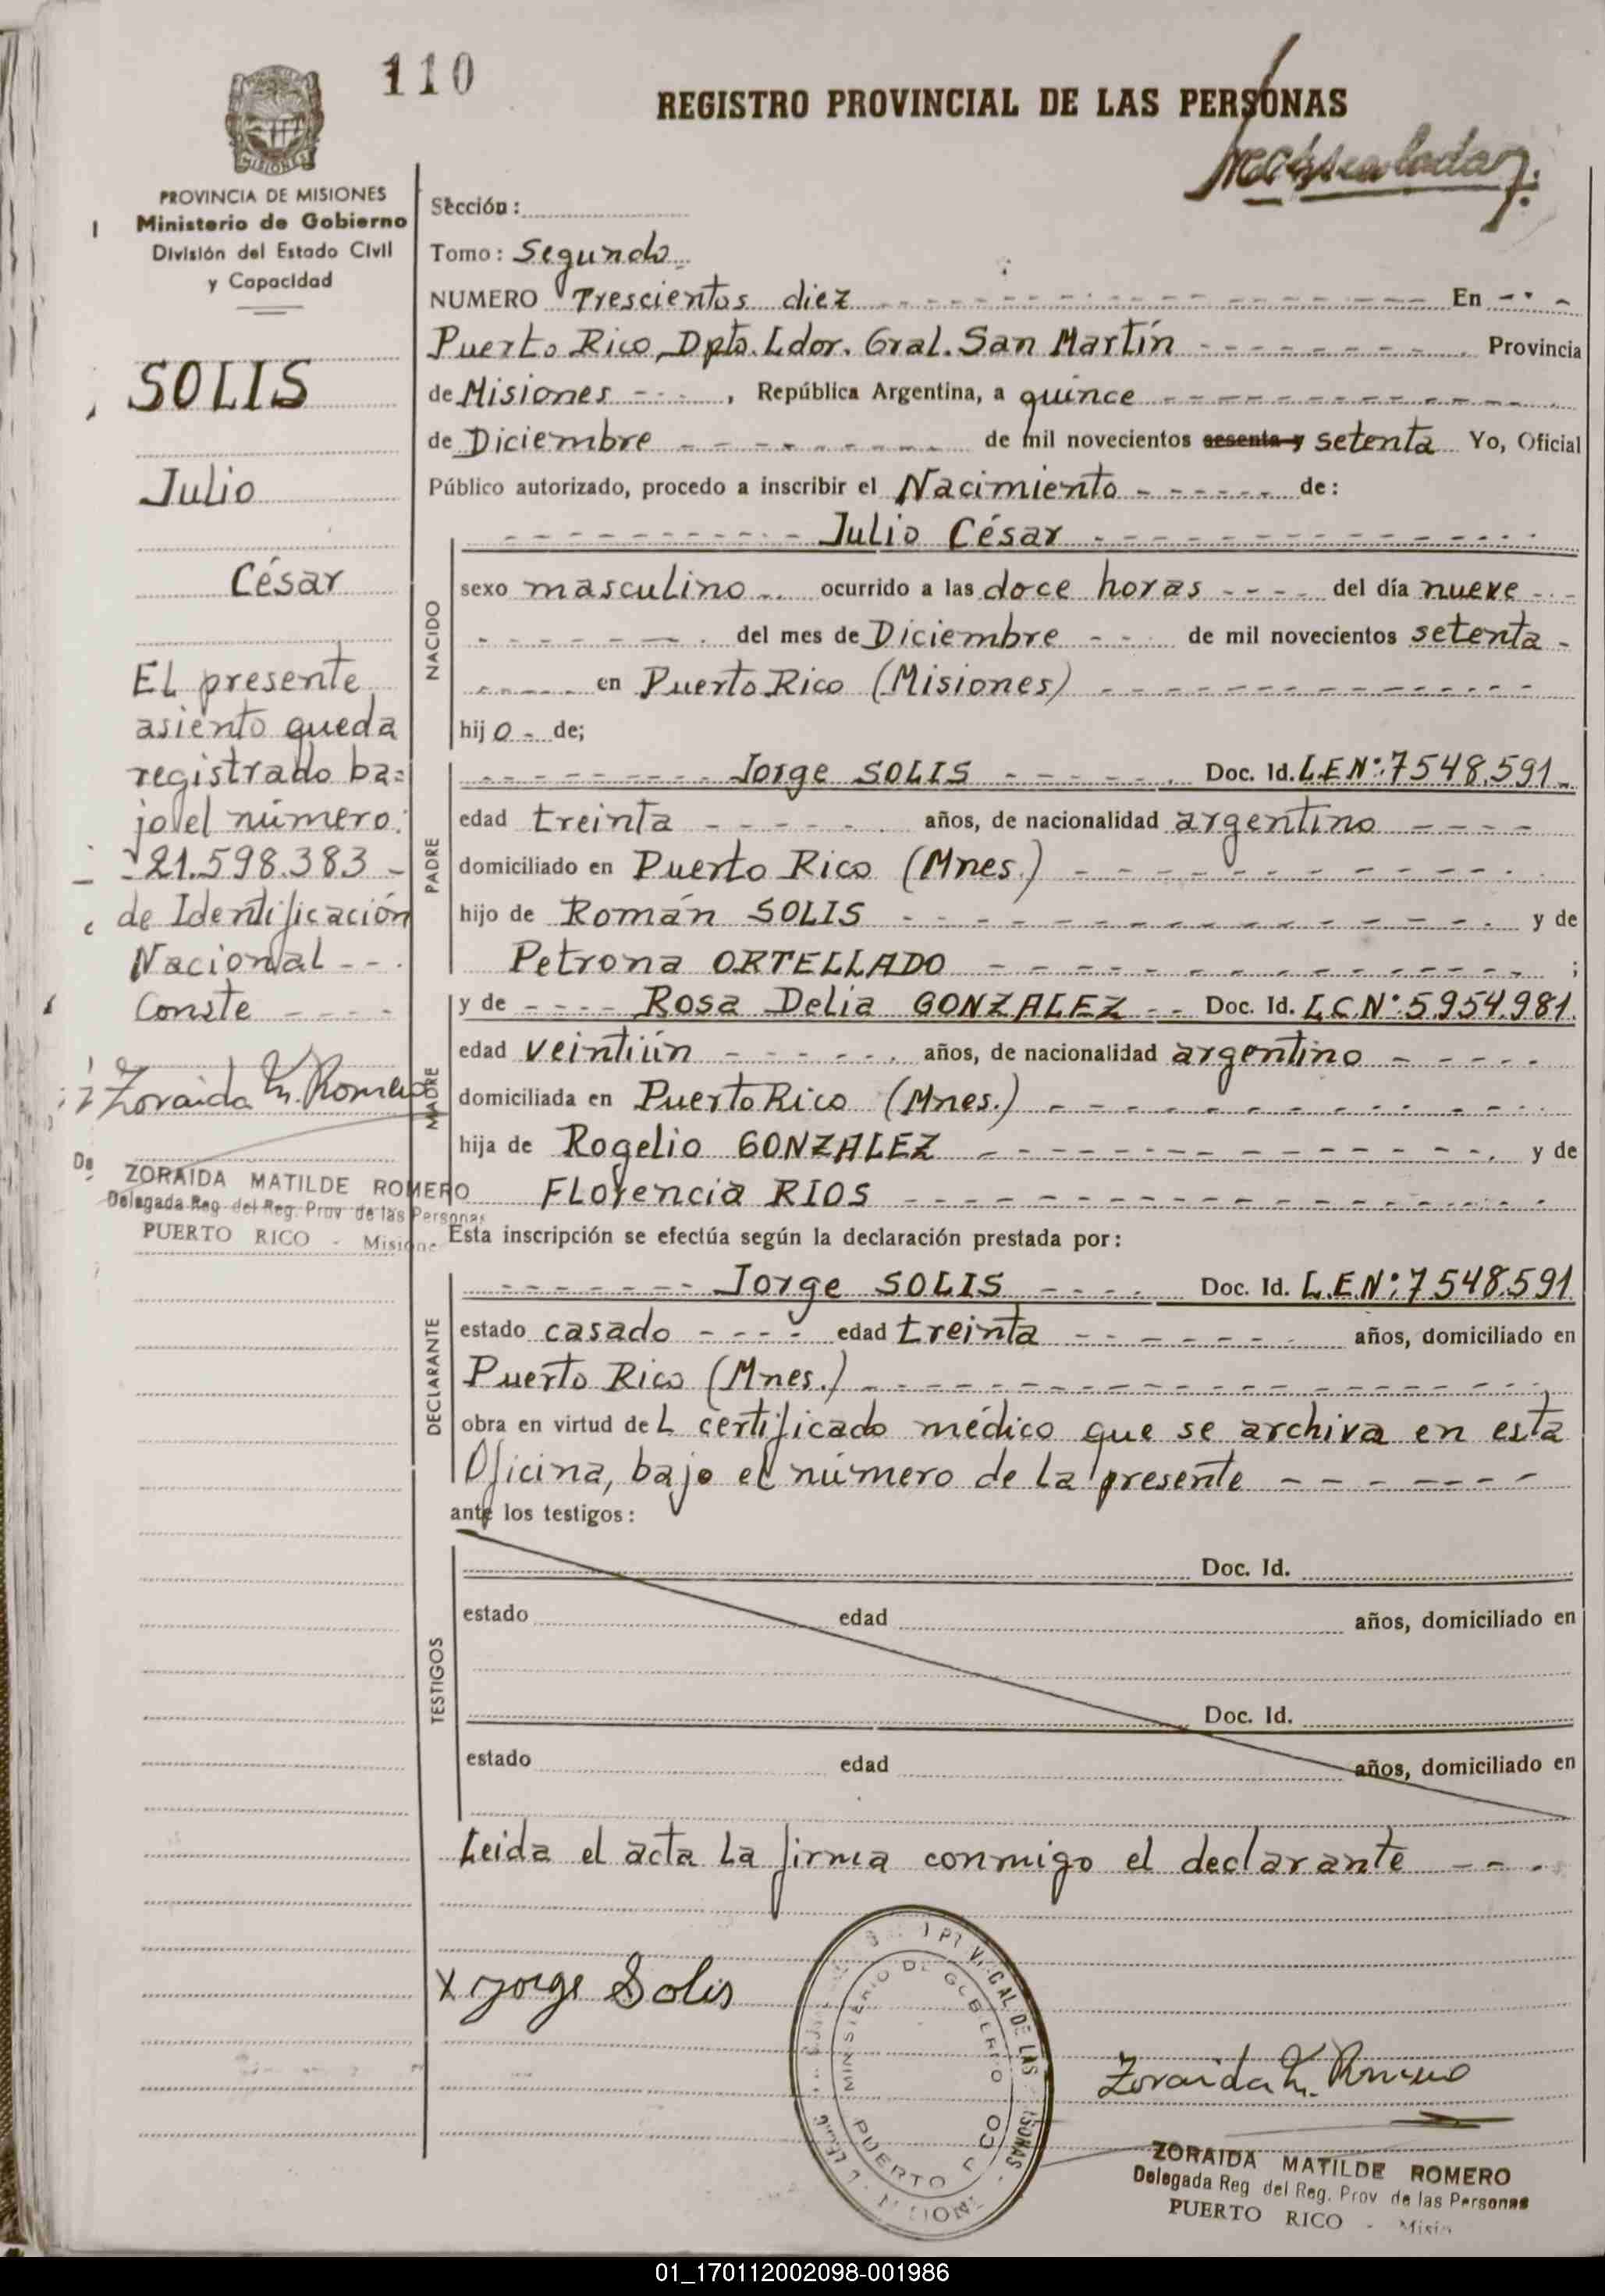 110
REGISTRO PROVINCIAL DE LAS PERSONAS
MISIONES
PROVINCIA DE MISIONES
Ministerio de Gobierno
División del Estado Civil
y Capacidad
SOLIS
Julio
César
El presente
asiento queda
registrado ba=
jo el número:
- 21.598.383 -
de Identificación
Nacional - - .
Conste - - - -
Zoraida M. Romero
ZORAIDA MATILDE ROMERO
Delegada Reg. del Reg. Prov de las Personas
PUERTO RICO - Misione
Sección:
Tomo: Segundo
NUMERO Trescientos diez En
Puerto Rico, Dpto. Ldor. Gral. San Martín Provincia
de Misiones , República Argentina, a quince
de Diciembre de mil novecientos sesenta y setenta Yo, Oficial
Público autorizado, procedo a inscribir el Nacimiento de:
Julio César
NACIDO
sexo masculino ocurrido a las doce horas del día nueve
del mes de Diciembre de mil novecientos setenta
en Puerto Rico (Misiones)
hijo de;
PADRE
Jorge SOLIS Doc. Id. L.E.Nº:7548.591
edad treinta años, de nacionalidad argentino
domiciliado en Puerto Rico (Mnes.)
hijo de Román SOLIS y de
Petrona ORTELLADO ;
MADRE
y de Rosa Delia GONZALEZ Doc. Id. L.C.Nº:5.954.981.
edad veintiún años, de nacionalidad argentino
domiciliada en Puerto Rico (Mnes.)
hija de Rogelio GONZALEZ y de
Florencia RIOS
Esta inscripción se efectúa según la declaración prestada por:
DECLARANTE
Jorge SOLIS Doc. Id. L.E.Nº:7.548.591
estado casado edad treinta años, domiciliado en
Puerto Rico (Mnes.)
obra en virtud del certificado médico que se archiva en esta
Oficina, bajo el número de la presente
ante los testigos:
TESTIGOS
Doc. Id.
estado edad años, domiciliado en
Doc. Id.
estado edad años, domiciliado en
Leida el acta la firma conmigo el declarante
x Jorge Solis
MINISTERIO DE GOBIERNO
PUERTO RICO
Zoraida M. Romero
ZORAIDA MATILDE ROMERO
Delegada Reg del Reg. Prov de las Personas
PUERTO RICO - Misio
01_170112002098-001986